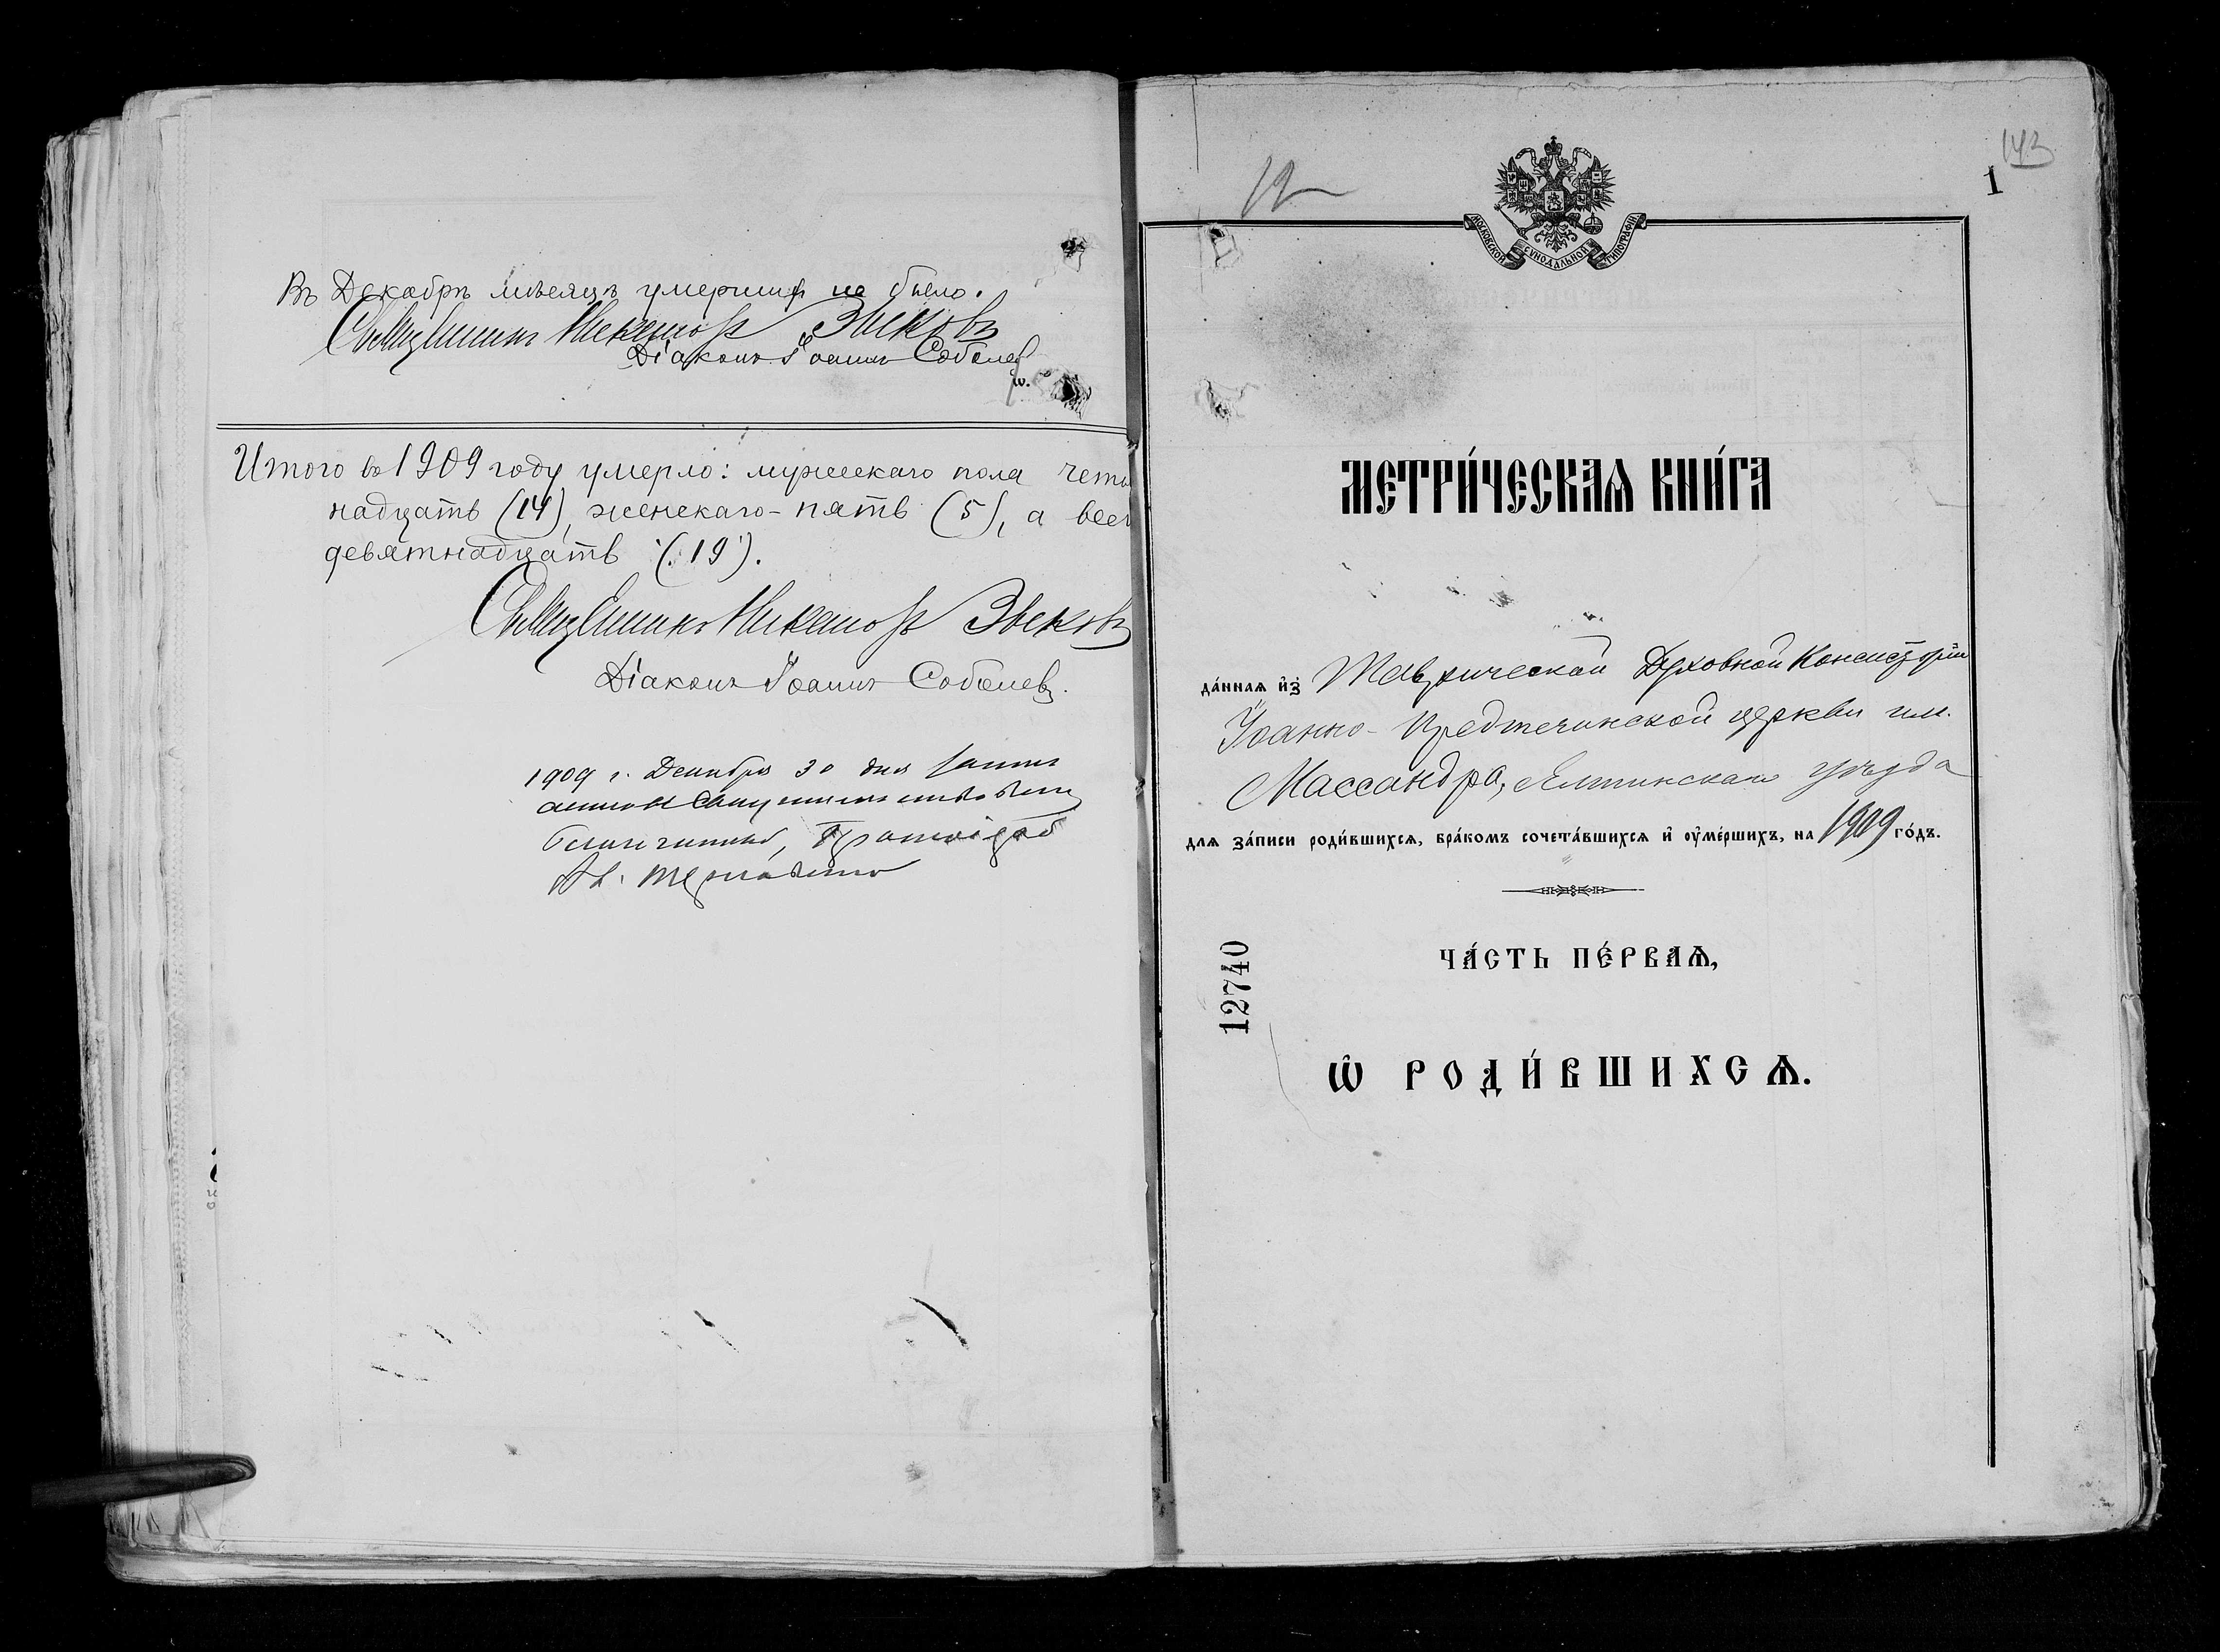 Въ Декабрѣ мѣсяцѣ умершихъ не было.
Священникъ Никаноръ Звѣковъ
Діаконъ Іоаннъ Соболевъ
Итого въ 1909 году умерло: мужескаго пола четы
надцать (14), женскаго - пять (5), а всег
девятнадцать (19).
Священникъ Никаноръ Звѣковъ
Діаконъ Іоаннъ Соболевъ.
1909 г. Декабря 30 дня
Благочинный, Протоіерей
143
1
12
МОСКОВСКОЙ СѴНОДАЛЬНОЙ ТИПОГРАФІИ
МЕТРИ́ЧЕСКАѦ КНИ́ГА
да́ннаѧ и҆з̾ Таврической Духовной Консисторіи
Іоанно-Предтечинской церкви им.
Массандра, Ялтинскаго уѣзда
длѧ за́писи роди́вшихсѧ, бра́комъ сочета́вшихсѧ и҆ ᲂу҆ме́ршихъ, на 1909 го́дъ.
12740
ЧА́СТЬ ПЕ́РВАѦ,
Ѽ РОДИ́ВШИХСѦ.